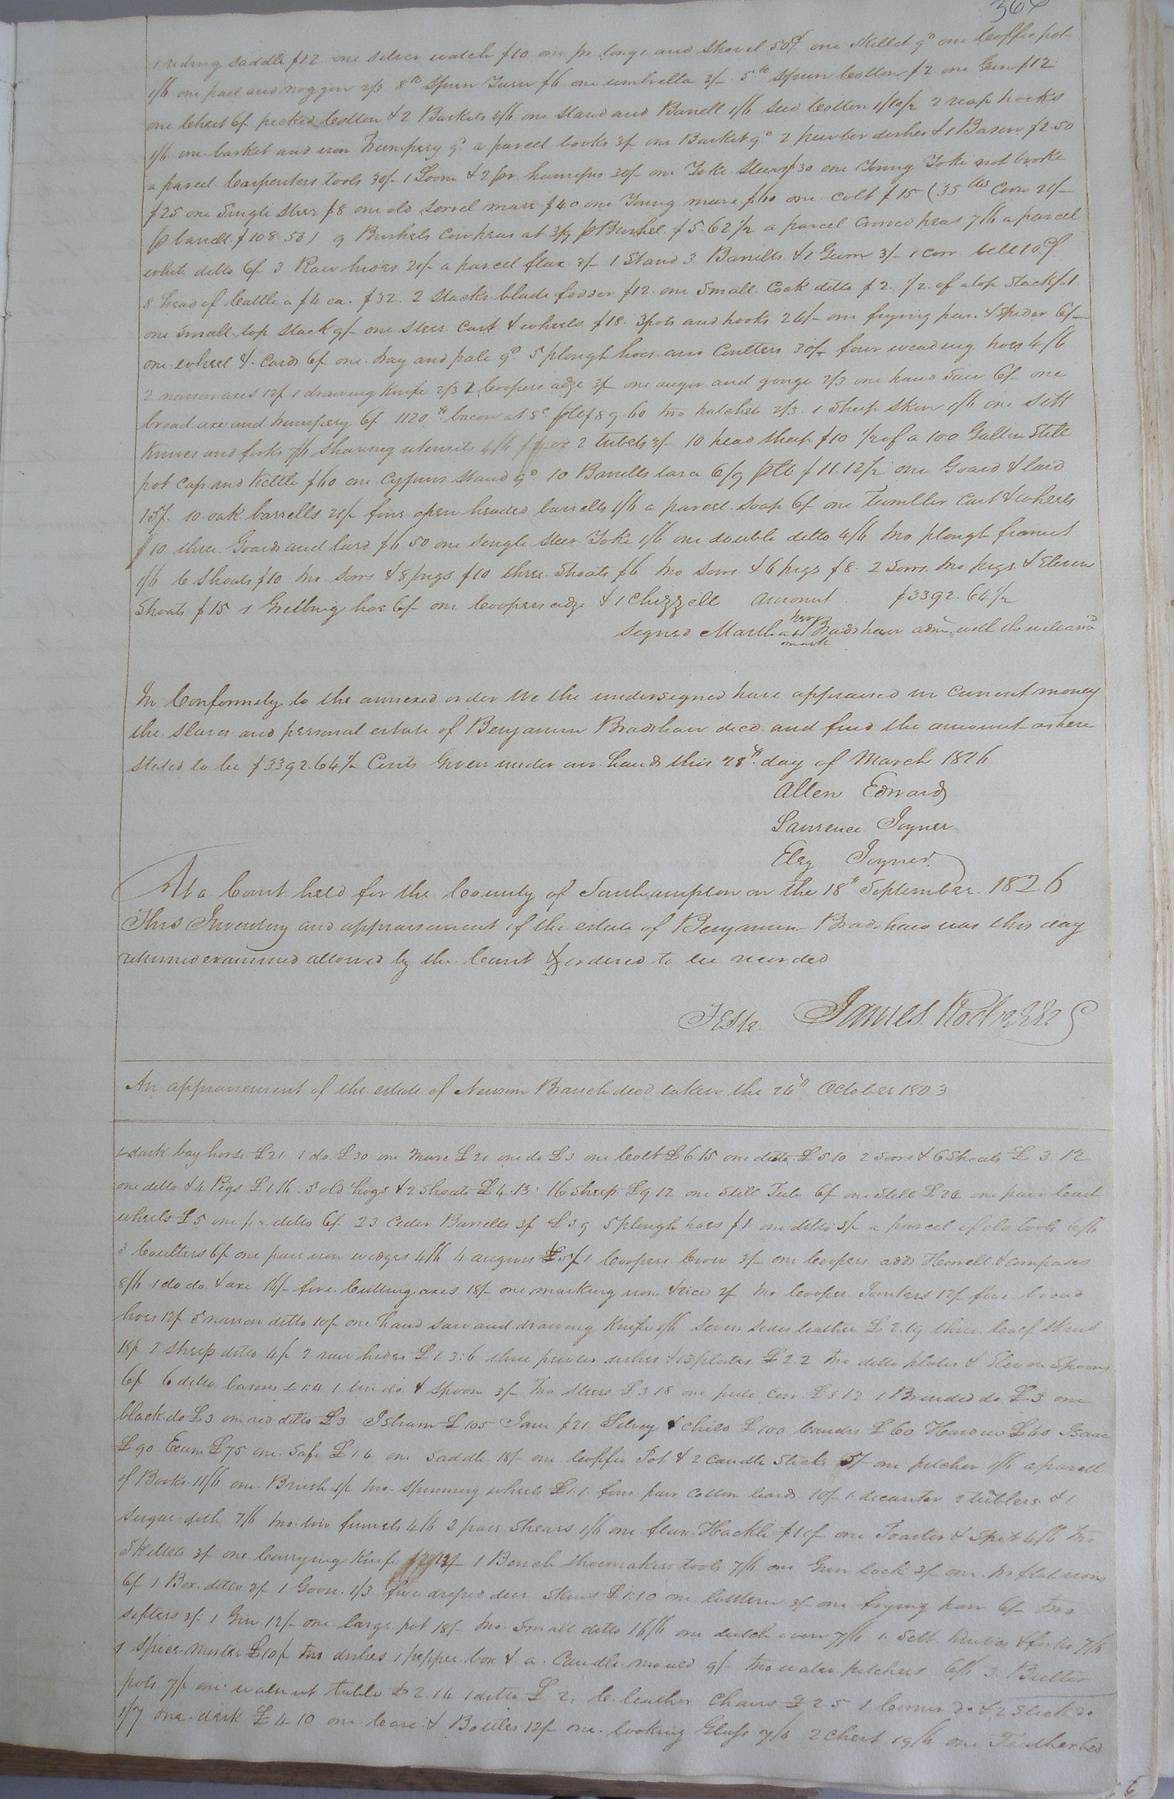 riding saddle $12 one silver watch $10 one pr tongs and shovel 50¢ one skillet 9d one Coffee pot
1/6 one pail and noggin 2/3 8 lb Spun $6 one umbrella 3/- 5 lb Spun Cotton $2 one Gun $12
one Chest 6/ picked Cotton & 2 Baskets 2/6 one Stand and Barrell 1/6 seed Cotton 1/10½ 2 reap hooks
1/6 one basket and iron Trumpery 9d a parcel books 3/ one Basket 9d 2 pewter dishes & 1 Bason $2.50
a parcel Carpenters tools 30/- 1 Loom & 2 pr harnesses 30/- one Yoke Steers $30 one Young Yoke not broke
$25 one Single Steer $8 one old Sorrel mare $40 one Young mare $60 one colt $15 (35 Corn 20/-
p barrell $108.50) 9 Bushels Cornpeas at 3/9 p Bushel $5.62½ a parcel peas 7/6 a parcel
white ditto 6/ 3 Raw hides 20/- a parcel flax 3/- 1 Stand 3 Barrells & 1 Gum 3/- 1 Cow bell 10¢
8 head of Cattle a $4 ea. $32 2 Stacks blade fodder $12 one Small Cock ditto $2 ½ of a top Stack $1
one Small top Stack 9/- one Steer Cart & wheels $18 3 pots and hooks 26/- one frying pan & Spider 6/-
one wheel & Cards 6/ one tray and pale 9d 5 plough hoes and Coulters 30/- four weading hoes 4/6
2 narrow axes 12/ 1 drawing knife 2/3 1 Coopers adze 3/ one auger and gouge 2/3 one hand Saw 6/ one
broad axe and trumpery 6/ 1120 lb bacon at 8c p lb $89.60 two hatchets 2/3 1 Sheep Skin 1/6 one Sett
knives and forks 7/6 Shaving utensils 4/6 2 tubs 3/ 10 head Sheep $10 ½ of a 100 Gallon Still
pot Cap and Kettle $60 one Cypruss Stand 9d 10 Barrells tar a 6/9 $11.12½ one Goard & lard
15/ 10 oak barrells 20/ four open headed barrells 1/6 a parcel Soap 6/ one Tumbler Cart & wheels
$10 three Goards and lard $6.50 one Single Steer Yoke 1/6 one double ditto 4/6 two plough frames
1/6 6 Shoats $10 two Sows & 8 pigs $10 three Shoats $6 two Sows & 6 pigs $8 2 Sows two pigs & Eleven
Shoats $15 1 Grubbing hoe 6/ one Coopers adze & 1 Chizzell amount $3392.64½
Signed Martha her mark Bradshaw adm with the will ann'd
In Conformity to the annexed order We the undersigned have appraised in current money
the Slaves and personal estate of Benjamin Bradshaw decd and find the amount as here
Stated to be $3392.64½ Cents Given under our hands this 28th day of March 1826
Allen Edwards
Laurence Joyner
Eley Joyner
At a Court held for the County of Southampton on the 18th September 1826
This Inventory and appraisement of the estate of Benjamin Bradshaw was this day
returned examined allowed by the Court & ordered to be recorded
Teste James Rochelle C
An appraisement of the estate of Newsom Branch decd taken the 24th October 1803
1 dark bay horse £21 1 do £30 one Mare £21 one do £3 one Coalt £6 15 one ditto £5 10 2 Sows & 6 Shoats £3.12
one ditto & 4 Pigs £1.16 5 old hogs & 2 Shoats £4.13 16 Sheep £9.12 one Still Tub 6/ one Still £24 one pair Cart
wheels £5 one pr ditto 6/ 23 Ceder Barrells 3/ £3 9 5 plough hoes £1 one ditto 3/ a parcel of old tools 6/6
3 Coulters 6/ one pair iron wedges 4/6 4 augurs 5/ 1 Coopers Crow 3/ one Coopers adds Howell & Compases
8/6 1 do do & axe 16/ five Cutting axes 18/ one marking iron & vice 2/ two Cooper Jointers 12/ five broad
hoes 12/ 5 narrow ditto 10/ one hand Saw and drawing Knife Seven Sides leather £2.19 three Calf Skins
18/ 2 Sheep ditto 4/ 2 raw hides £1.3.6 three pewter dishes & 13 plates £2.2 two ditto plates & Eleven Spoons
6/ 6 ditto basons £1.4 1 tin do & Spoon 3/ two Steers £3.18 one pide Cow £3.12 1 Brinded do £3 one
black do £3 one red ditto £3 Isham £105 Jane £21 Silvey & Child £100 £60 £60 Isaac
£90 Exum £75 one Safe £1.4 one Saddle 18/ one Coffee Pot & 2 Candle Sticks 5/ one pitcher 1/6 a parcell
of Books 11/6 one Brush 1/ two Spinning wheels £1.1 four pair Cotton Cards 10/ 1 decanter 2 tublers & 1
Sugar dish 7/6 two tin funnels 4/6 2 pair Shears 1/6 one flax Hackle one Toaster & Spit 4/6 two
Skillets 3/ one Currying Knife 1 Bench Shoemakers tools 7/6 one Gun lock 3/ one two flat irons
6/ 1 Box ditto 3/ 1 Goose 1/3 five dresed deer Skins £1.10 one 3/ one frying pan 6/ two
Sifters 3/ 1 Gun 12/- one large pot 18/ two Small ditto 16/6 one dutch oven 7/6 1 Sett Knives & forks 7/6
1 Spice mortar £10/ two dishes 1 pepper box & a Candle mould 9/ two water pitchers 6/6 3 Butter
pots 7/ one walnut table £2.14 1 ditto £2 6 leather Chairs £2.5 1 do & 2
1/7 one desk £4.10 one Case & Bottles 12/ one looking Glass 7/6 2 Chest 19/6 one Featherbed